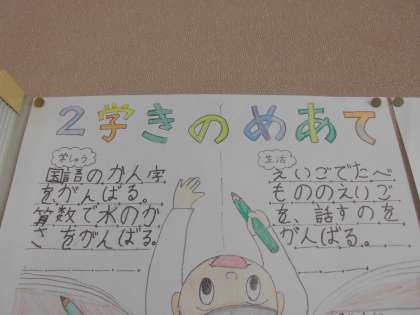 2学きのめあて
学しゅう
国語のかん字
をがんばる。
算数で水のか
さをがんばる。
生活
えいごでたべ
もののえいご
を、話すのを
がんばる。